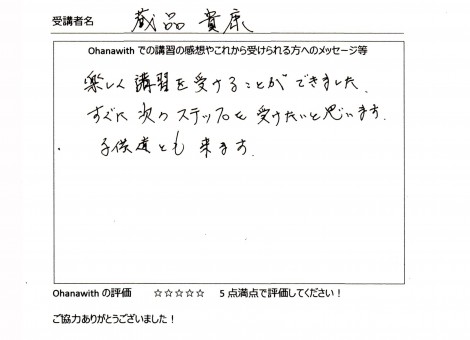 受講者名 蔵品 貴康
Ohanawith での講習の感想やこれから受けられる方へのメッセージ等
楽しく講習を受けることができました。
すぐに次のステップを受けたいと思います。
子供達とも来ます。
Ohanawith の評価 ☆☆☆☆☆ 5点満点で評価してください！
ご協力ありがとうございました！